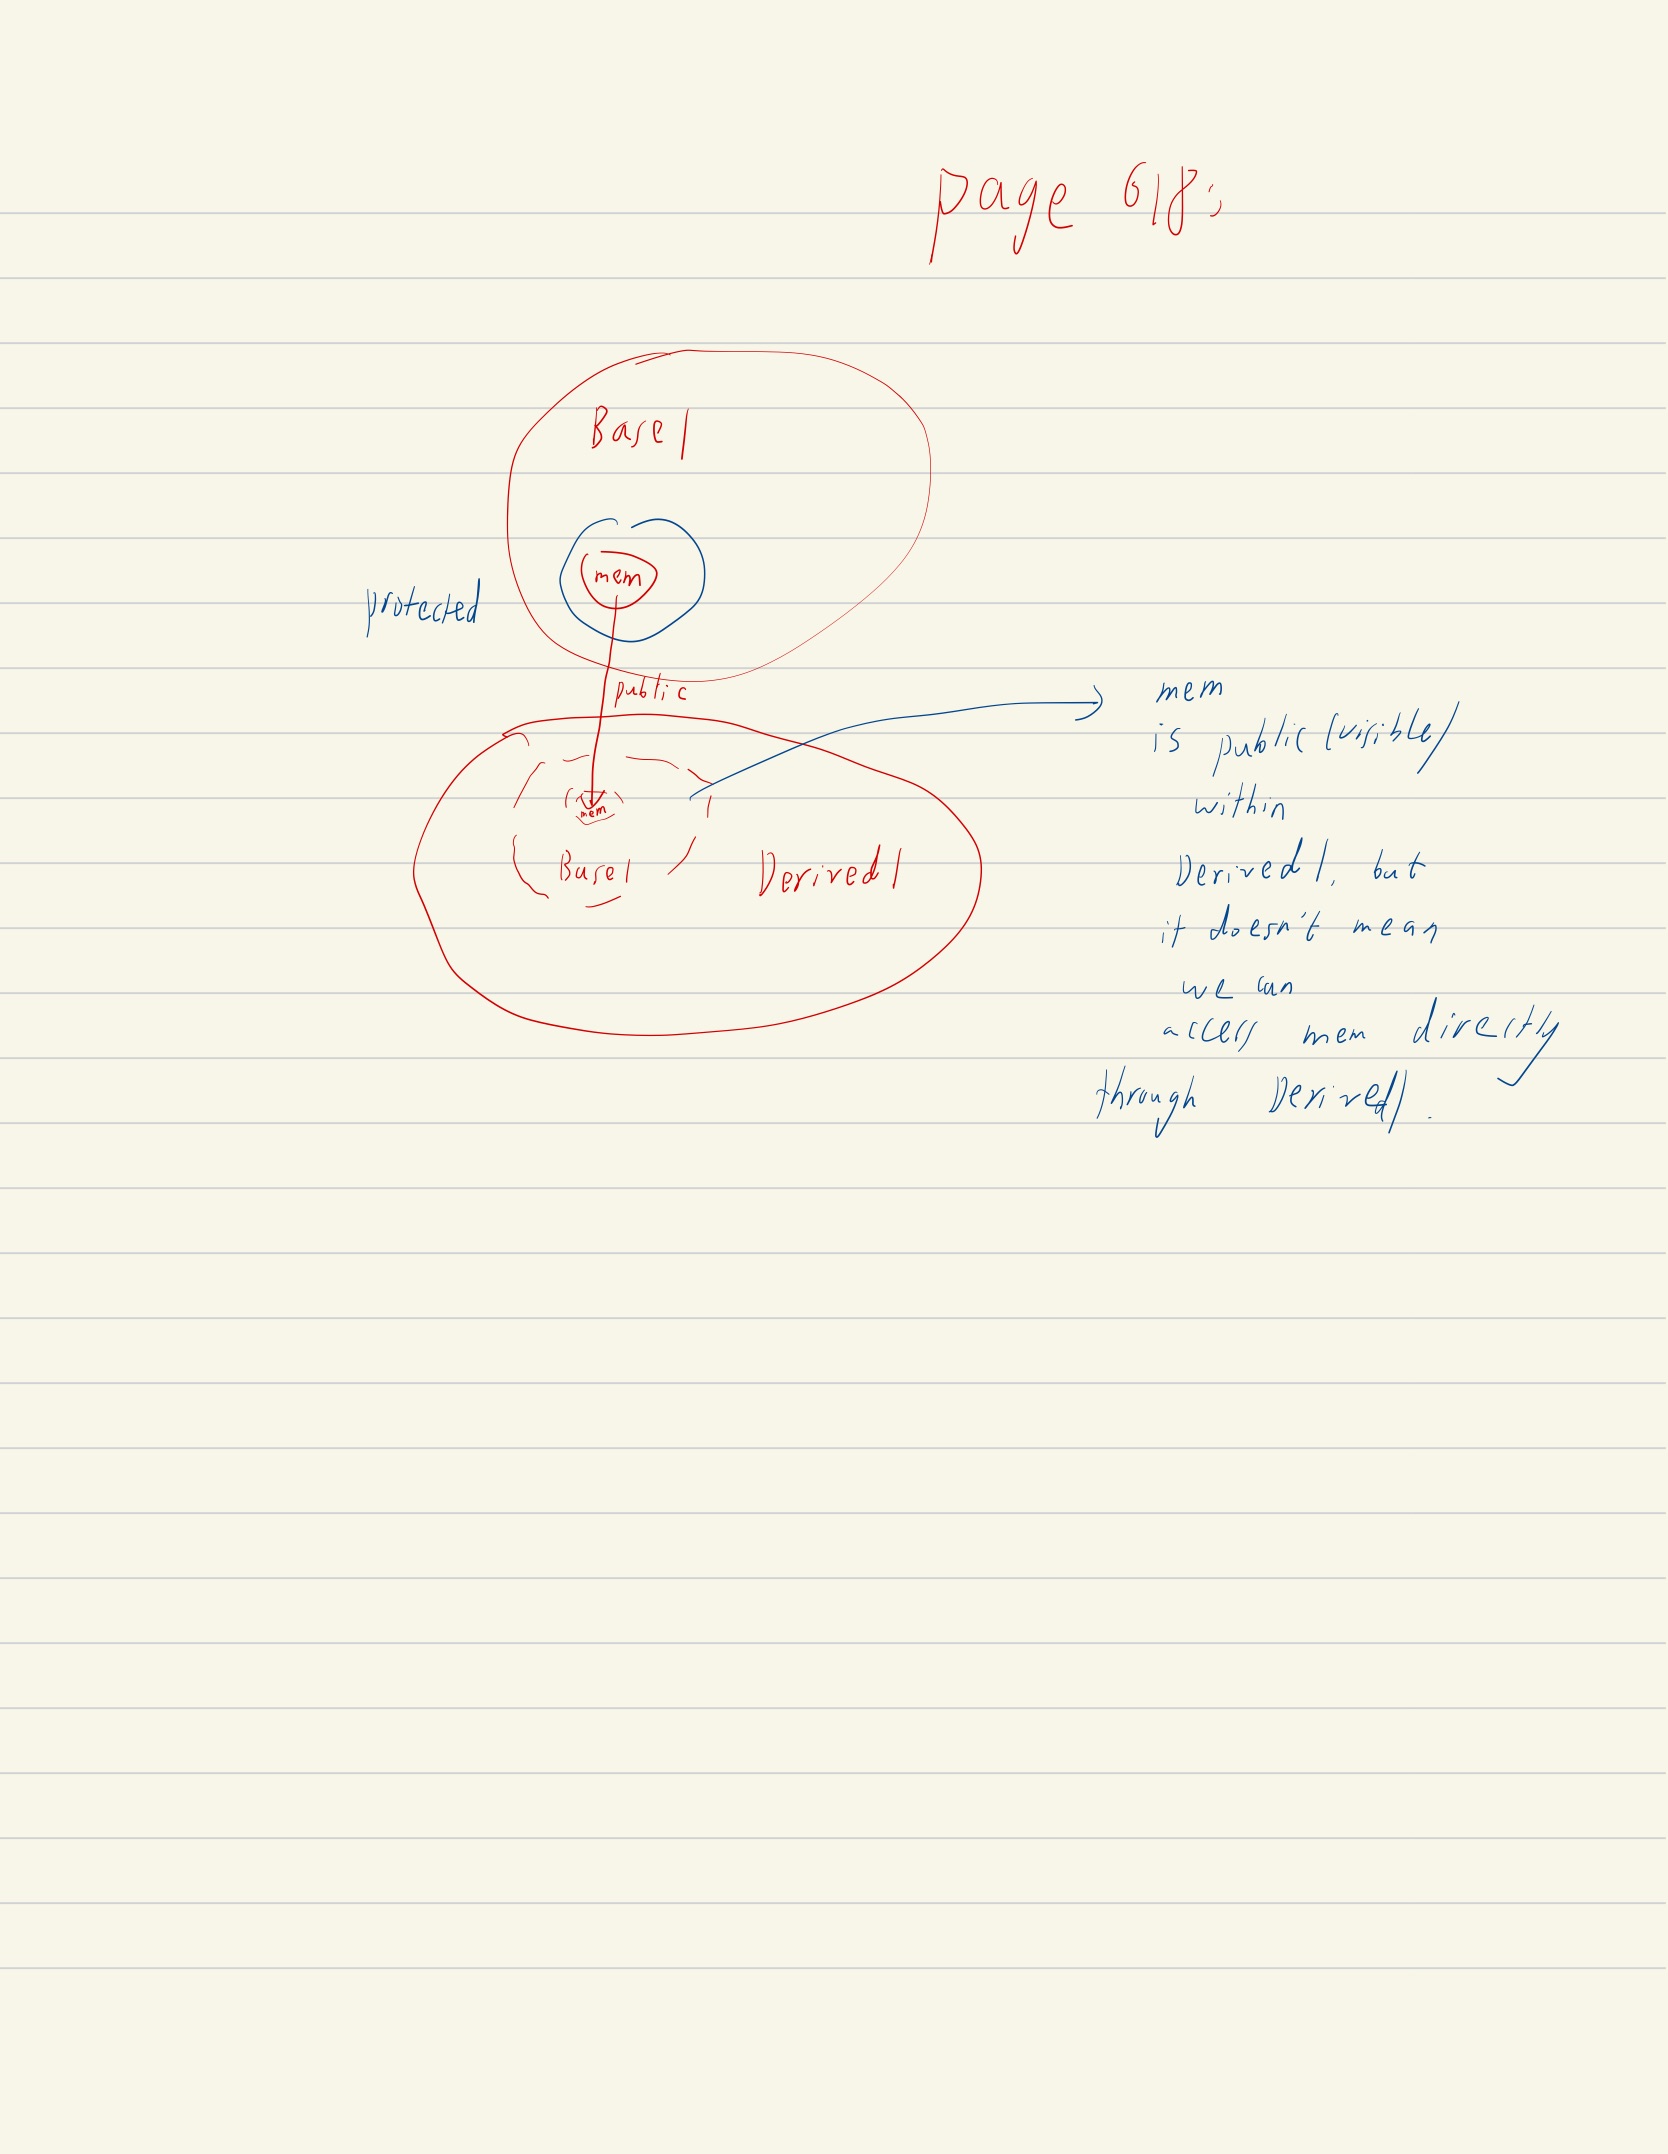 page 618:
Base1
mem
protected
public
mem
Base1
Derived1
mem
is public (visible)
within
Derived1, but
it doesn't mean
we can
access mem directly
through Derived1.